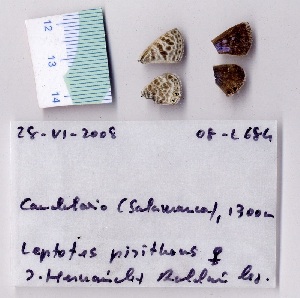 12
13
14
28-VI-2008 08-L684
Candelario (Salamanca), 1300m
Leptotes pirithous ♀
J. Hernández Roldán leg.